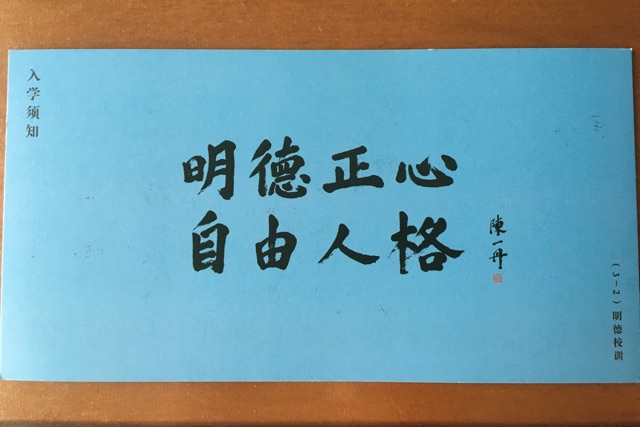 入学须知
明德正心
自由人格
陳一丹
（3－2）明德校训